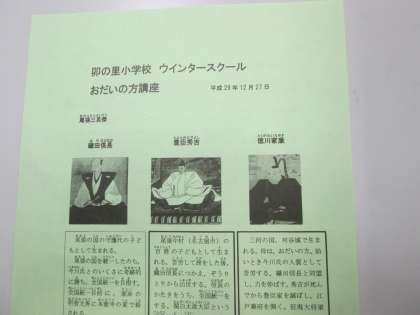 卯の里小学校 ウインタースクール
おだいの方講座
平成29年12月27日
尾張三英傑
織田信長
豊臣秀吉
徳川家康
尾張の国の守護代の子ど
もとして生まれる。
尾張の国を統一したのち、
今川氏とのいくさに奇跡的
に勝ち、全国統一を目指す。
尾張中村(名古屋市)の
百姓の子どもとして生ま
れる。
織田信長につかえ、ぞうり
とりから出世する。信長の
かたきをうち、全国統一を
する。関白太政大臣という
三河の国、刈谷城で生ま
れる。母は、おだいの方。幼
いとき今川氏の人質として
苦労する。織田信長と同盟
し、力を伸ばす。秀吉が死ん
でから豊臣家を滅ぼし、江
戸幕府を開く。征夷大将軍